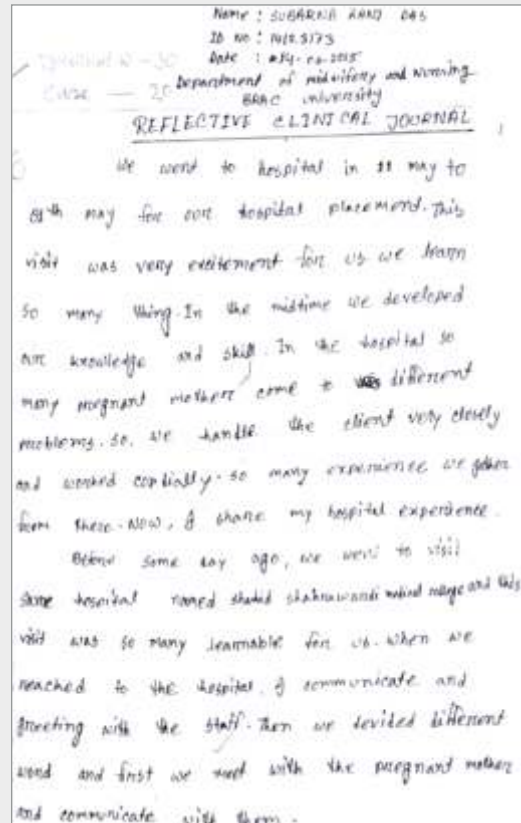 Name : SUBARNA RANI DAS
ID NO :
Date :
Department of midwifery and Nursing
BRAC university
Case — 20
REFLECTIVE CLINICAL JOURNAL
We went to hospital in 11 may to
may for our hospital placement. This
visit was very excitement for us we learn
so many thing. In the midtime we developed
our knowledge and skill. In the hospital so
many pregnant mothers come to different
problems. so. we handle the client very closely
and worked cordially. so many experience we gather
from there. NOW, I share my hospital experience.
Before some day ago, we went to visit
some hospital named shahid medical college and this
visit was so many learnable for us. when we
reached to the hospital, I communicate and
greeting with the staff. Then we devided different
word and first we meet with the pregnant mother
and communicate with them.